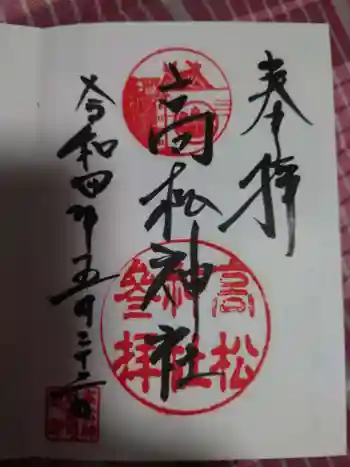 奉拝
高松神社
高松
神社
参拝
令和四年五月二十二日